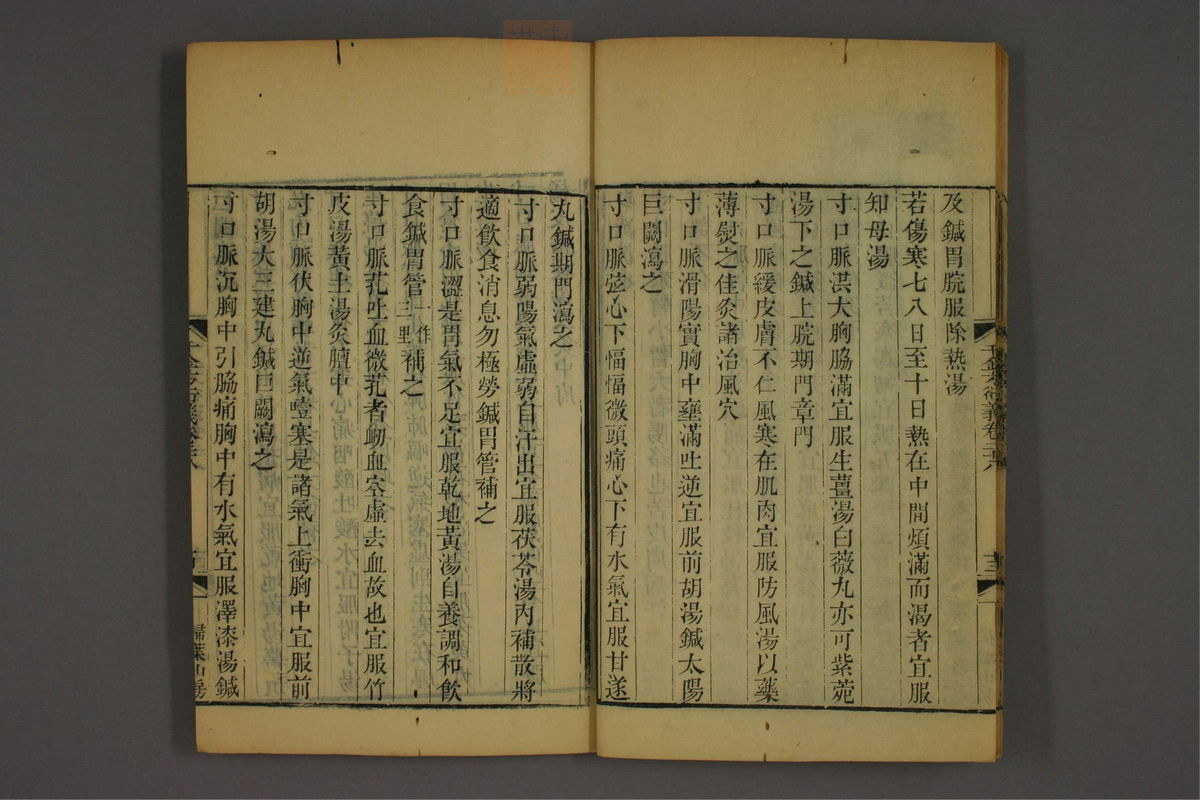 及鍼胃脘服除熱湯
若傷寒七八日至十日熱在中間煩滿而渴者宜服
知母湯
寸口脈洪大胸脇滿宜服生薑湯白薇丸亦可紫菀
湯下之鍼上脘期門章門
寸口脈緩皮膚不仁風寒在肌肉宜服防風湯以藥
薄熨之佳灸諸治風穴
寸口脈滑陽實胸中壅滿吐逆宜服前胡湯鍼太陽
巨闕瀉之
寸口脈弦心下愊愊微頭痛心下有水氣宜服甘遂
丸鍼期門瀉之
寸口脈弱陽氣虛弱自汗出宜服茯苓湯內補散將
適飲食消息勿極勞鍼胃管補之
寸口脈澀是胃氣不足宜服乾地黃湯自養調和飲
食鍼胃管一作三里補之
寸口脈芤吐血微芤者衂血空虛去血故也宜服竹
皮湯黃土湯灸膻中
寸口脈伏胸中逆氣噎塞是諸氣上衝胸中宜服前
胡湯大三建丸鍼巨闕瀉之
寸口脈沉胸中引脇痛胸中有水氣宜服澤漆湯鍼
千金方衍義卷二十八
掃葉山房